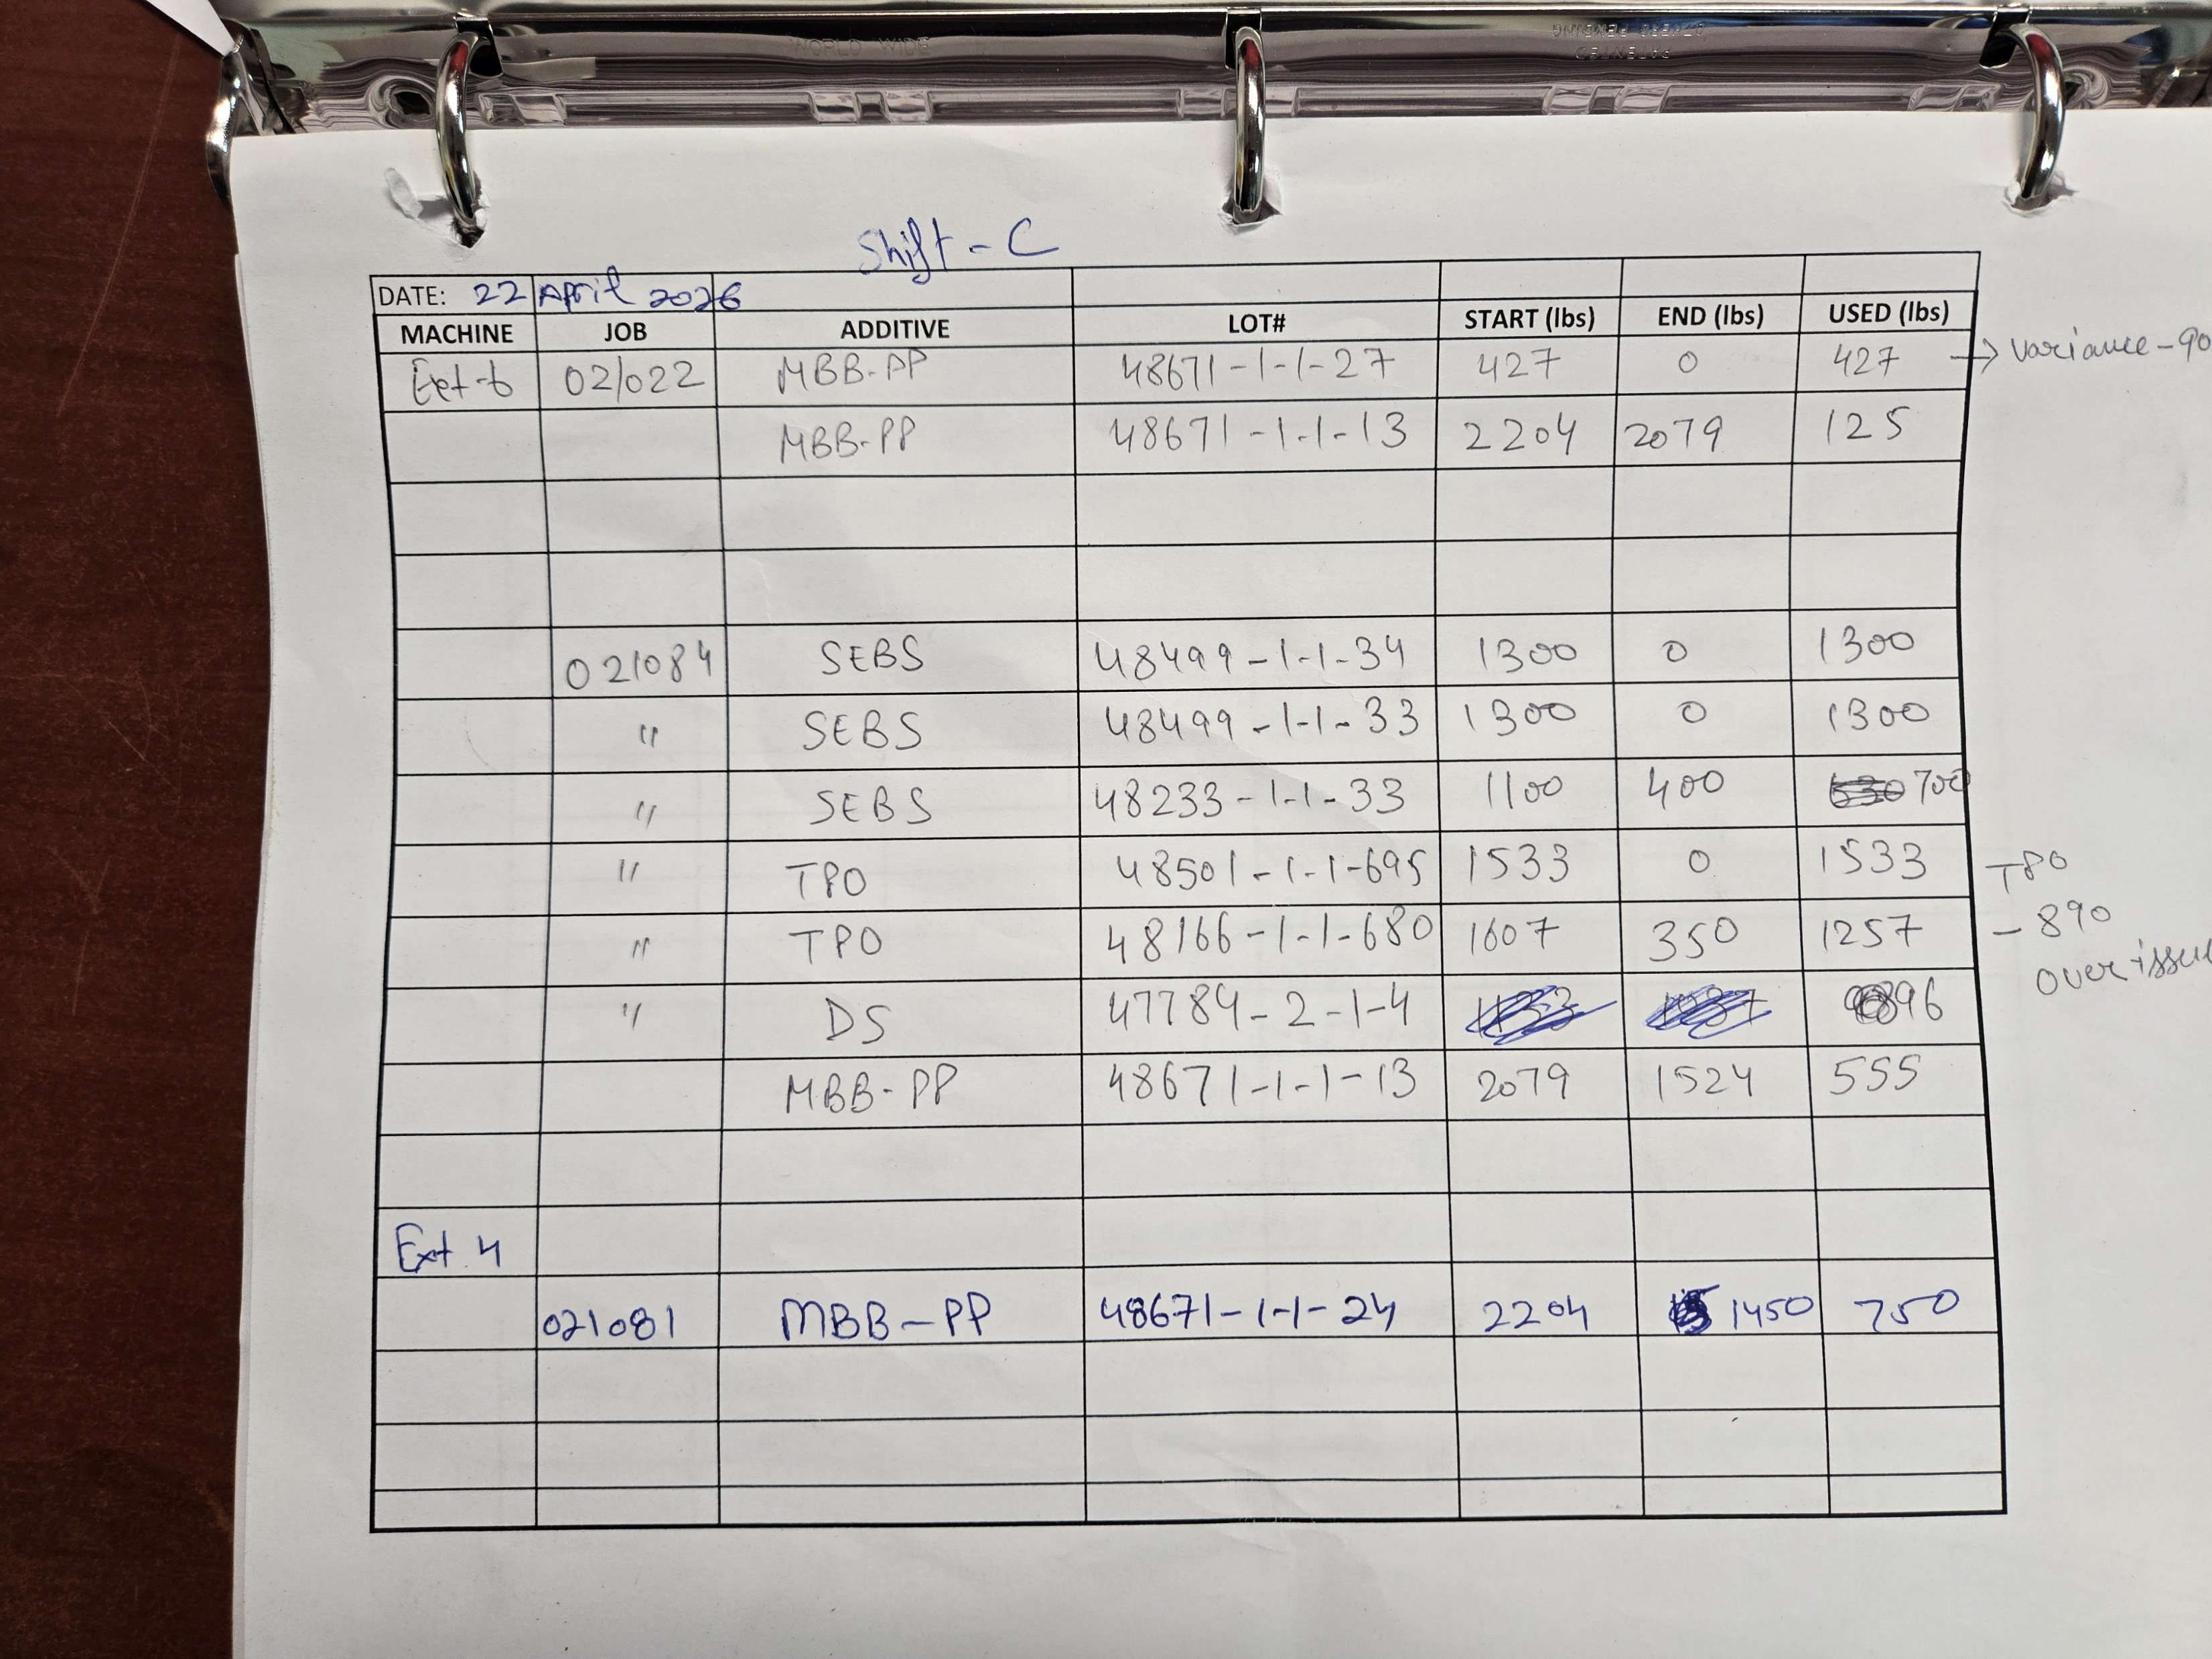 WORLD WIDE
PATENTED
Shift - C
DATE: 22 April 2026
MACHINE JOB ADDITIVE LOT# START (lbs) END (lbs) USED (lbs)
Ext-6 021022 MBB-PP 48671-1-1-27 427 0 427 → variance - 90
MBB-PP 48671-1-1-13 2204 2079 125
021084 SEBS 48499-1-1-34 1300 0 1300
" SEBS 48499-1-1-33 1300 0 1300
" SEBS 48233-1-1-33 1100 400 700
" TPO 48501-1-1-695 1533 0 1533 TPO
" TPO 48166-1-1-680 1607 350 1257 - 890
over issue
" DS 47784-2-1-4 896
MBB-PP 48671-1-1-13 2079 1524 555
Ext. 4
021081 MBB-PP 48671-1-1-24 2204 1450 750